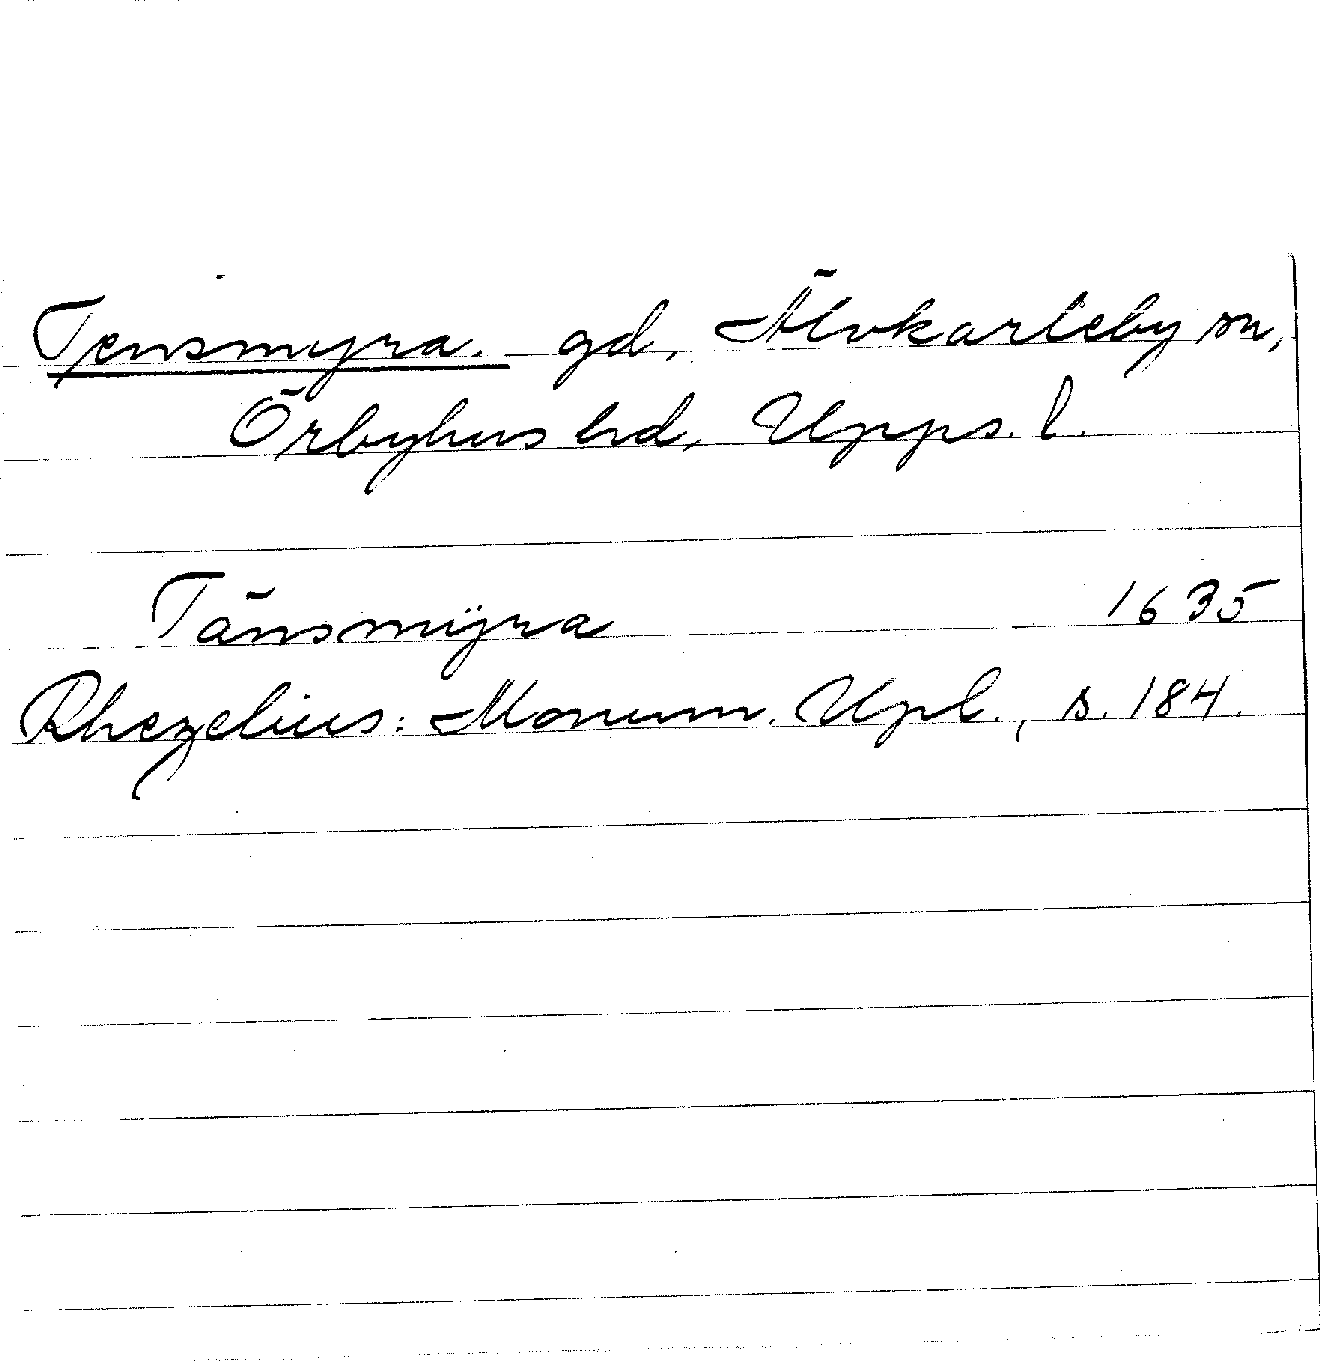 Tensmyra. gd, Älvkarleby sn,
Örbyhus hd, Upps. l.
Tänsmÿra 1635
Rhezelius: Monum. Upl., s. 184.